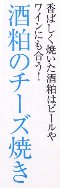 香ばしく焼いた酒粕はビールや
ワインにも合う!!
酒粕のチーズ焼き